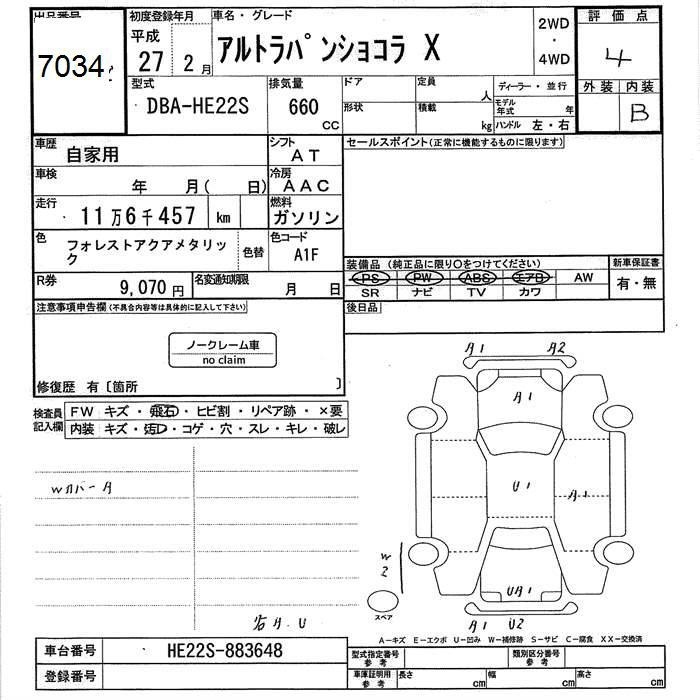 出品番号
7034
初度登録年月
平成
27 2月
車名・グレード
アルトラパンショコラ X
2WD
・
4WD
評価点
4
外装 内装
B
型式
DBA-HE22S
排気量
660
CC
ドア
形状
定員
人
積載
kg
ディーラー・並行
モデル
年式
年
ハンドル 左・右
車歴
自家用
シフト
AT
車検
年 月( 日)
冷房
AAC
走行
11万6千457 km
燃料
ガソリン
色
フォレストアクアメタリッ
ク
色替
色コード
A1F
R券
9,070円
名変通知期限
月 日
セールスポイント(正常に機能するものに限ります)
装備品(純正品に限り○をつけてください)
PS PW ABS エアB AW
SR ナビ TV カワ
新車保証書
有・無
後日品
注意事項申告欄(不具合内容等は具体的に記入して下さい)
ノークレーム車
no claim
修復歴 有〔箇所 〕
検査員
記入欄
FW キズ・飛石・ヒビ割・リペア跡・×要
内装 キズ・汚レ・コゲ・穴・スレ・キレ・破レ
Wカバー A
A1 A2
A1
U1
A1
W
2
UA1
スペア
A1 U2
A-キズ E-エクボ U-凹み W-補修跡 S-サビ C-腐食 XX-交換済
車台番号
HE22S-883648
登録番号
型式指定番号
参考
類別区分番号
参考
車庫証明用
参考
長さ cm
幅 cm
高さ cm